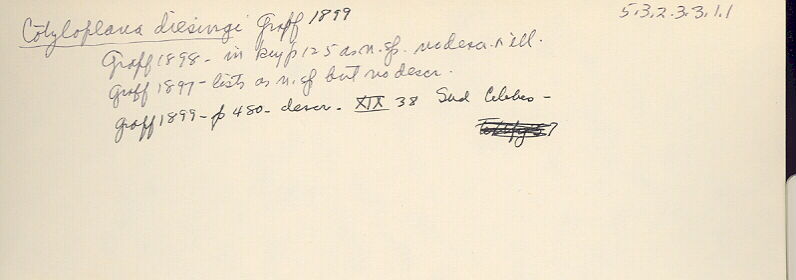 Cotyloplana diesingi Graff 1899
5.3.2.3.3.1.1
Graff 1898 - in key p 125 as n. sp. no descr. n ill.
Graff 1897 - lists as n. sp but no descr.
Graff 1899 - p 480 - descr. XIX 38 Sud Celebes -